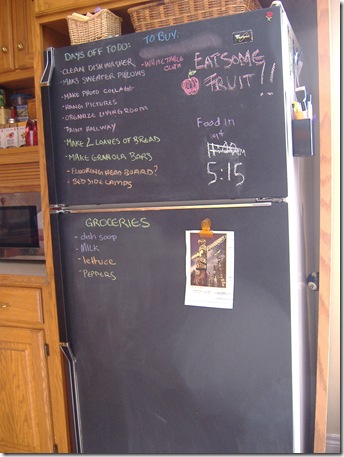 DAYS OFF TODO:
- CLEAN DISHWASHER
- MAKE SWEATER PILLOWS
- MAKE PHOTO COLLAGE
- HANG PICTURES
- ORGANIZE LIVING ROOM
- PAINT HALLWAY
- MAKE 2 LOAVES OF BREAD
- MAKE GRANOLA BARS
- FLOORING HEAD BOARD?
- BED SIDE LAMPS
TO BUY:
TABLE CLOTH
EAT SOME
FRUIT!!
Whirlpool
Food in
5:15
GROCERIES
- dish soap
- MILK
- lettuce
- PEPPERS